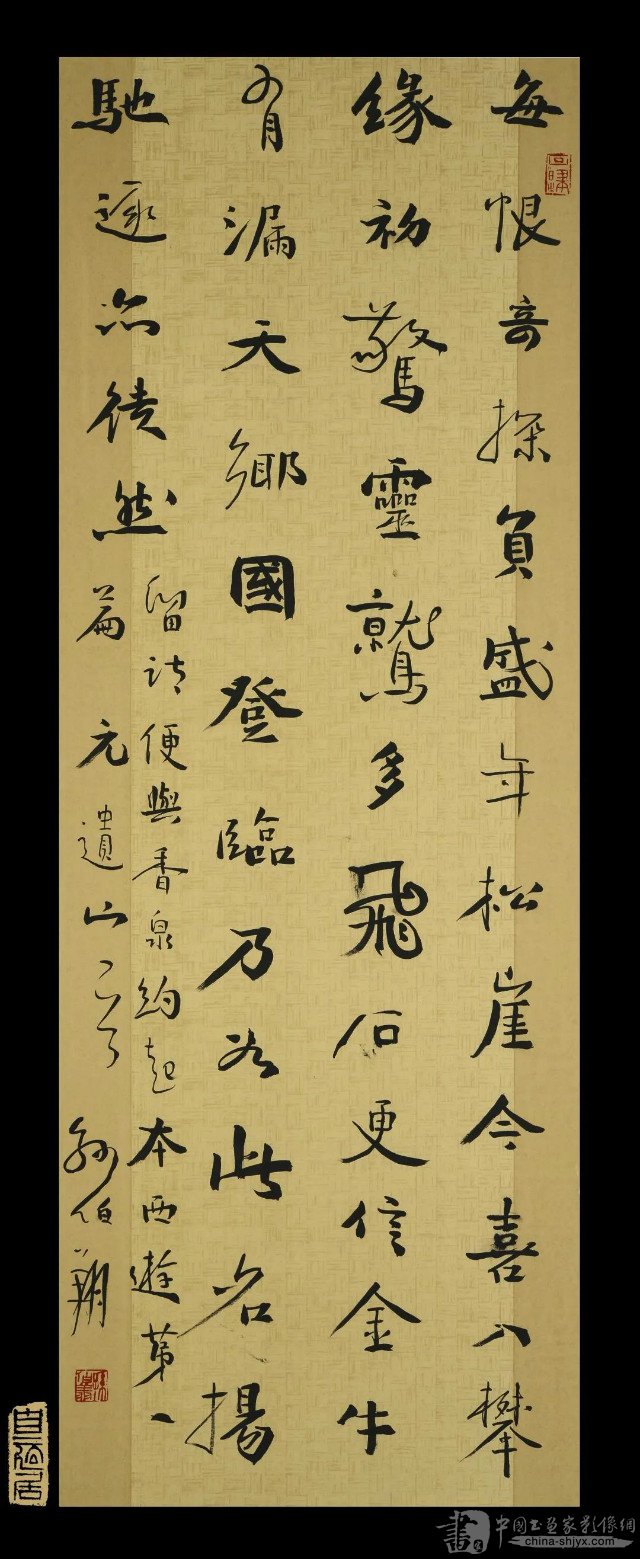 每恨奇探負盛年松崖今喜入攀
緣初驚靈鷲多飛石更信金牛
有漏天鄉國登臨乃如此名揚
馳逐亦徒然
留詩便與香泉約起本西遊第一
篇 元遺山 孫伯翔
中国书画家影像網
china-shjyx.com